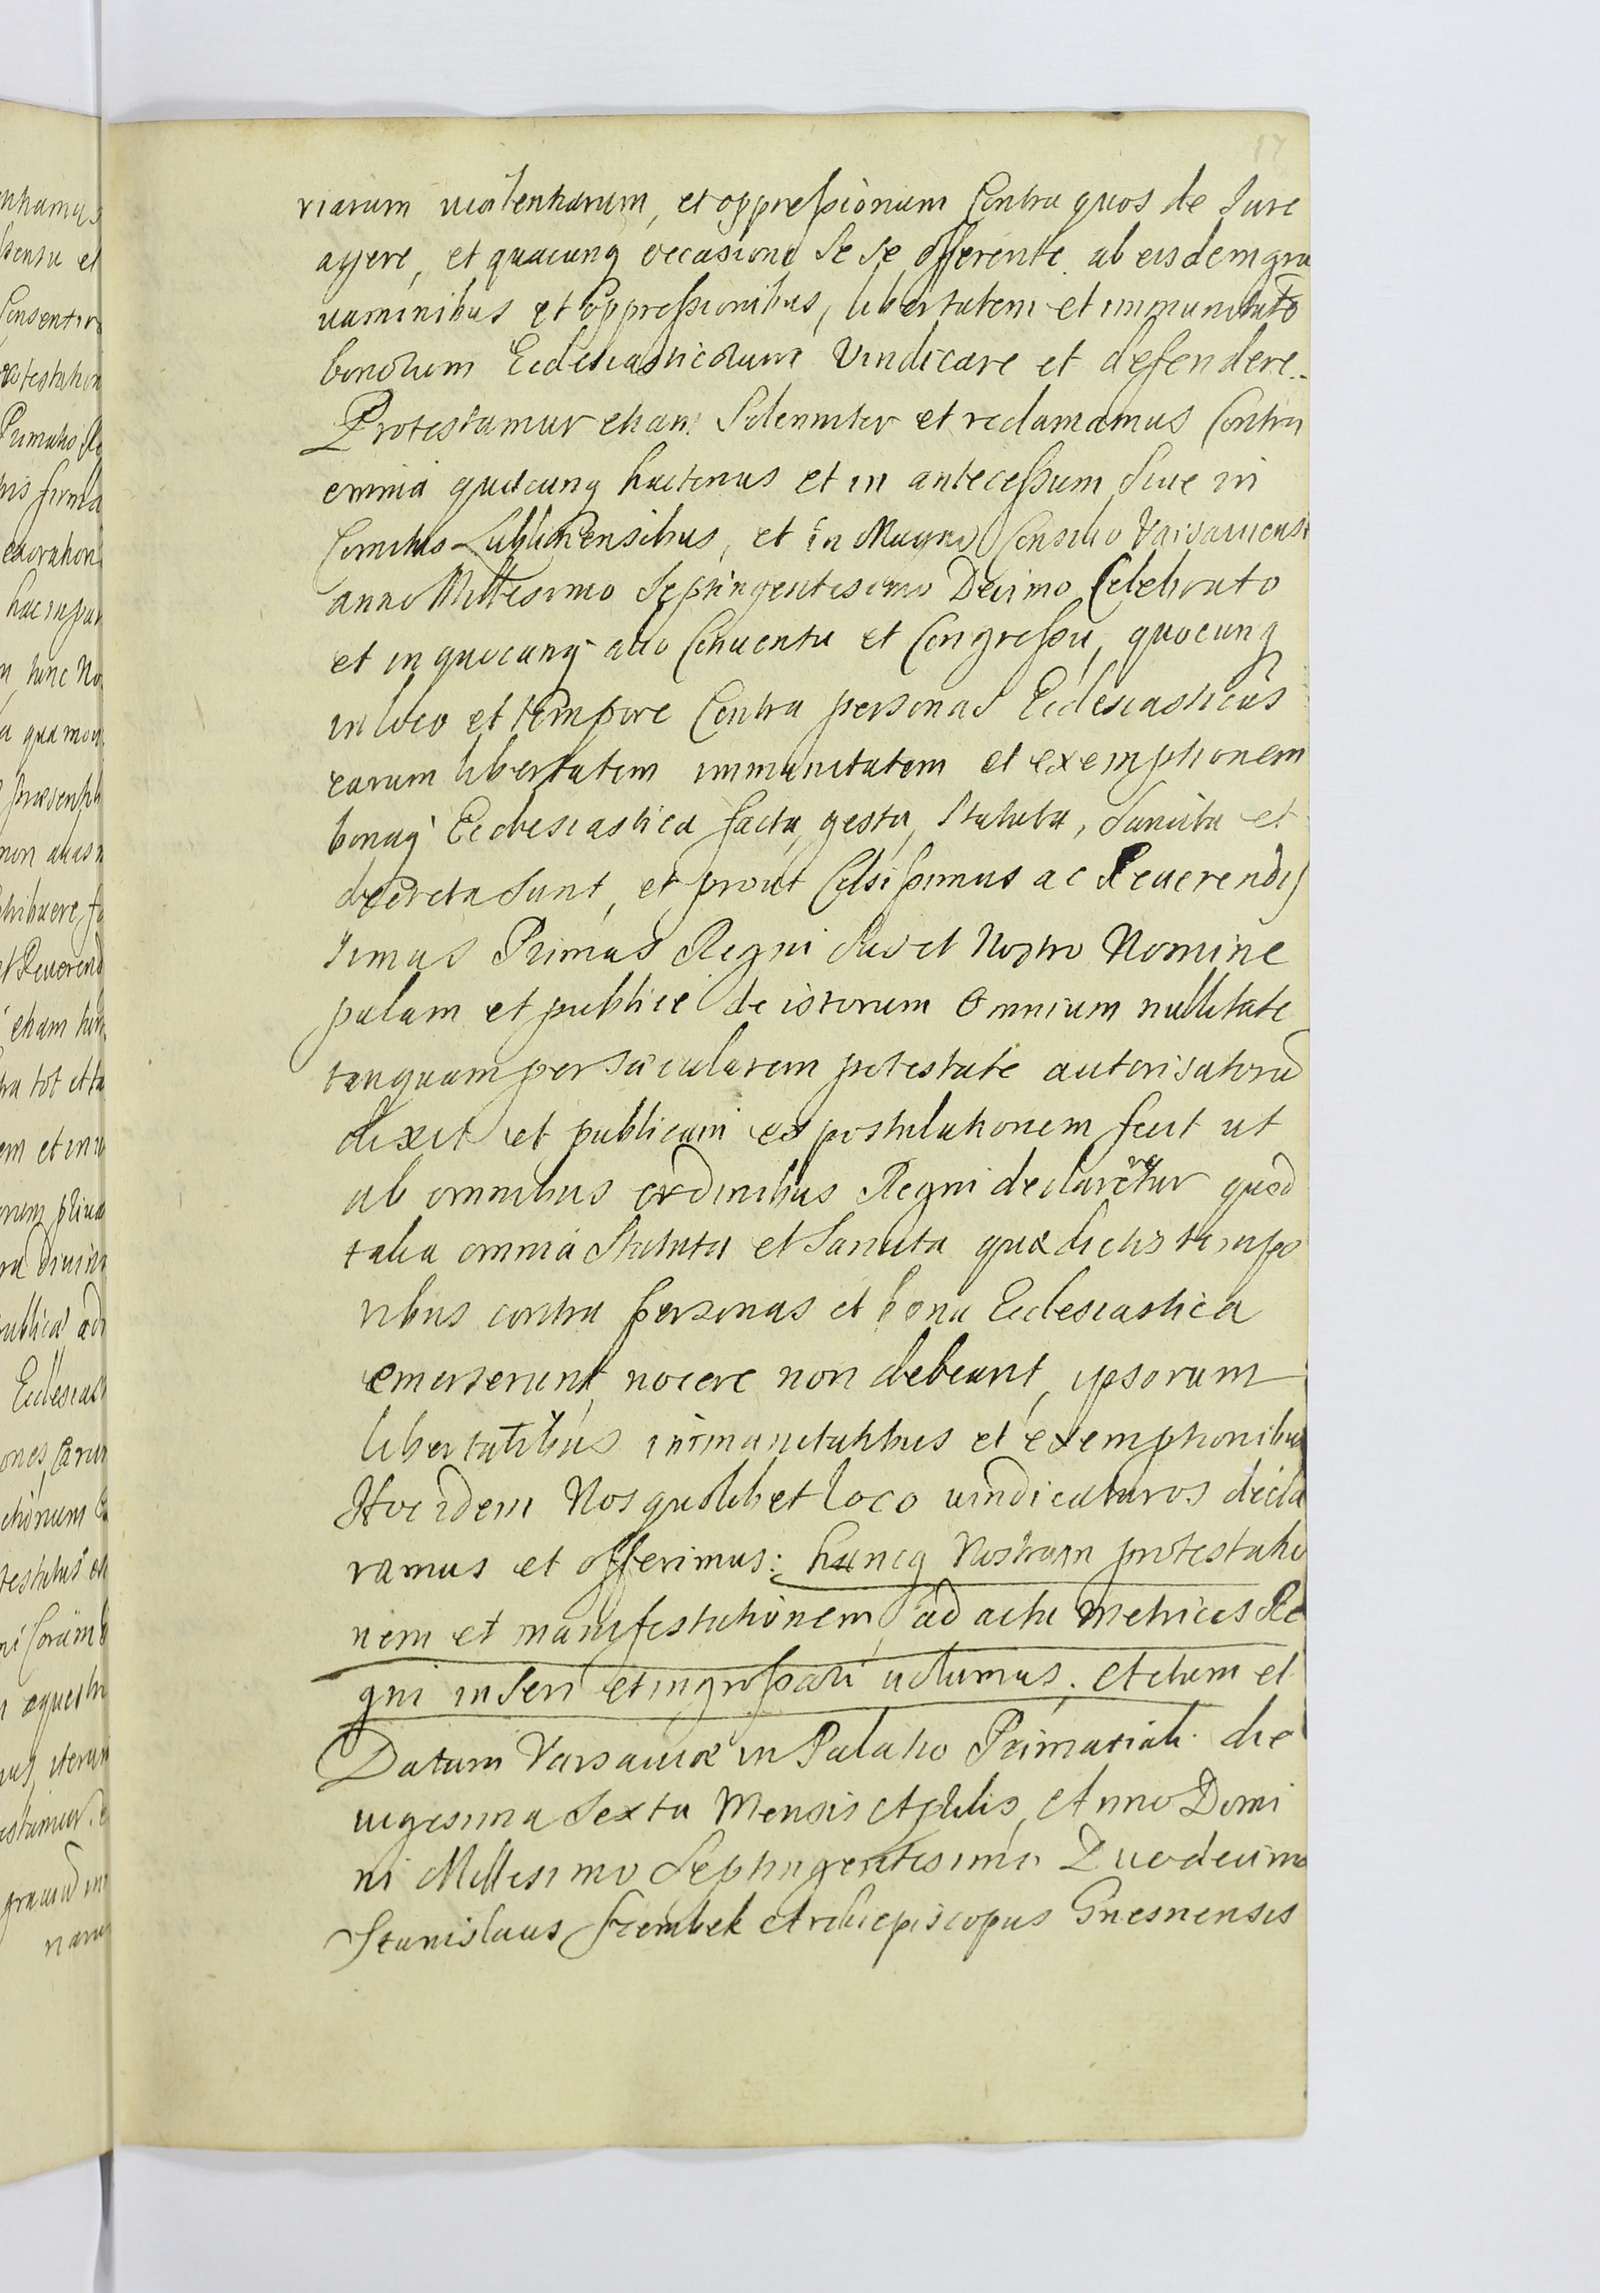 87
riarum uiolentiarum, et oppressionum Contra quos de Iure
agere, et quacunq occasione se se offerente. ab eisdem gra
uaminibus et oppressionibus, libertatem et immunitatē
bonorum Ecclesiasticorum Vindicare et defendere.
Protestamur etiam Solenniter et reclamamus Contra
omnia quæcunq hactenus et in antecessum siue in
Comitiis Lublinensibus, et in Magno Consilio Varsauiensi
anno Millesimo Septingentesimo Decimo Celebrato
et in quocunq alio Conuentu et Congressu, quocunq
in loco et tempore Contra personas Ecclesiasticas
earum libertatem immunitatem et exemptionem
bonaq Ecclesiastica facta, gesta, Statuta, Sancita et
decreta sunt, et prout Celsissimus ac Reuerendis
simus Primas Regni Suo et Nostro Nomine
palam et publice de istorum Omnium nullitate
tanquam per sæcularem potestatē autorisatorū
dixit et publicam expostulationem fecit ut
ab omnibus ordinibus Regni declaretur quod
talia omnia Statuta et Sancita quæ dictis tempo
ribus contra personas et bona Ecclesiastica
emerserunt, nocere non debeant, ipsorum
libertatibus immunitatibus et exemptionibus
Hoc idem Nos quolibet loco uindicaturos decla
ramus et offerimus: hancq Nostram protestatio
nem et manifestationem ad acta Metrices Re
gni inseri et ingrossari uolumus. Actum et
Datum Varsauiæ in Palatio Primatiali die
uigesima Sexta Mensis Aprilis, Anno Domi
ni Millesimo Septingentesimo Duodecimo
Stanislaus Szembek Archiepiscopus Gnesnensis